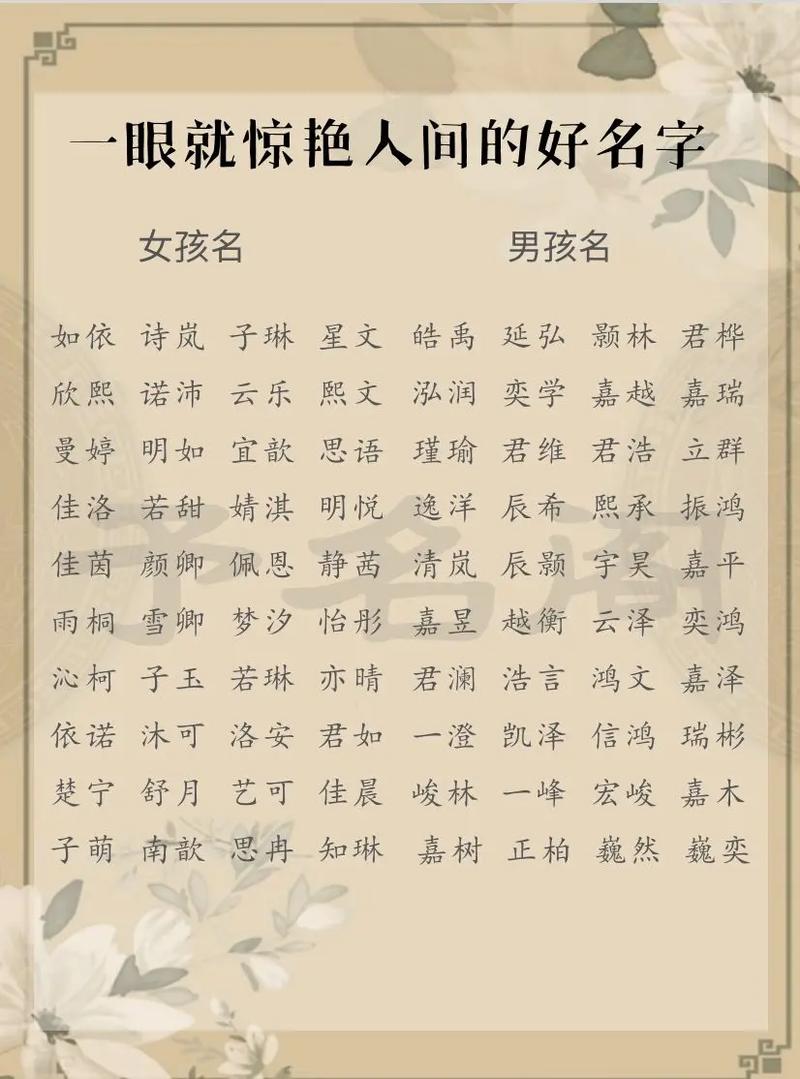 一眼就惊艳人间的好名字
女孩名 男孩名
如依 诗岚 子琳 星文 皓禹 延弘 颢林 君桦
欣熙 诺沛 云乐 熙文 泓润 奕学 嘉越 嘉瑞
曼婷 明如 宜歆 思语 瑾瑜 君维 君浩 立群
佳洛 若甜 婧淇 明悦 逸洋 辰希 熙承 振鸿
佳茵 颜卿 佩恩 静茜 清岚 辰颢 宇昊 嘉平
雨桐 雪卿 梦汐 怡彤 嘉昱 越衡 云泽 奕鸿
沁柯 子玉 若琳 亦晴 君澜 浩言 鸿文 嘉泽
依诺 沐可 洛安 君如 一澄 凯泽 信鸿 瑞彬
楚宁 舒月 艺可 佳晨 峻林 一峰 宏峻 嘉木
子萌 南歆 思冉 知琳 嘉树 正柏 巍然 巍奕